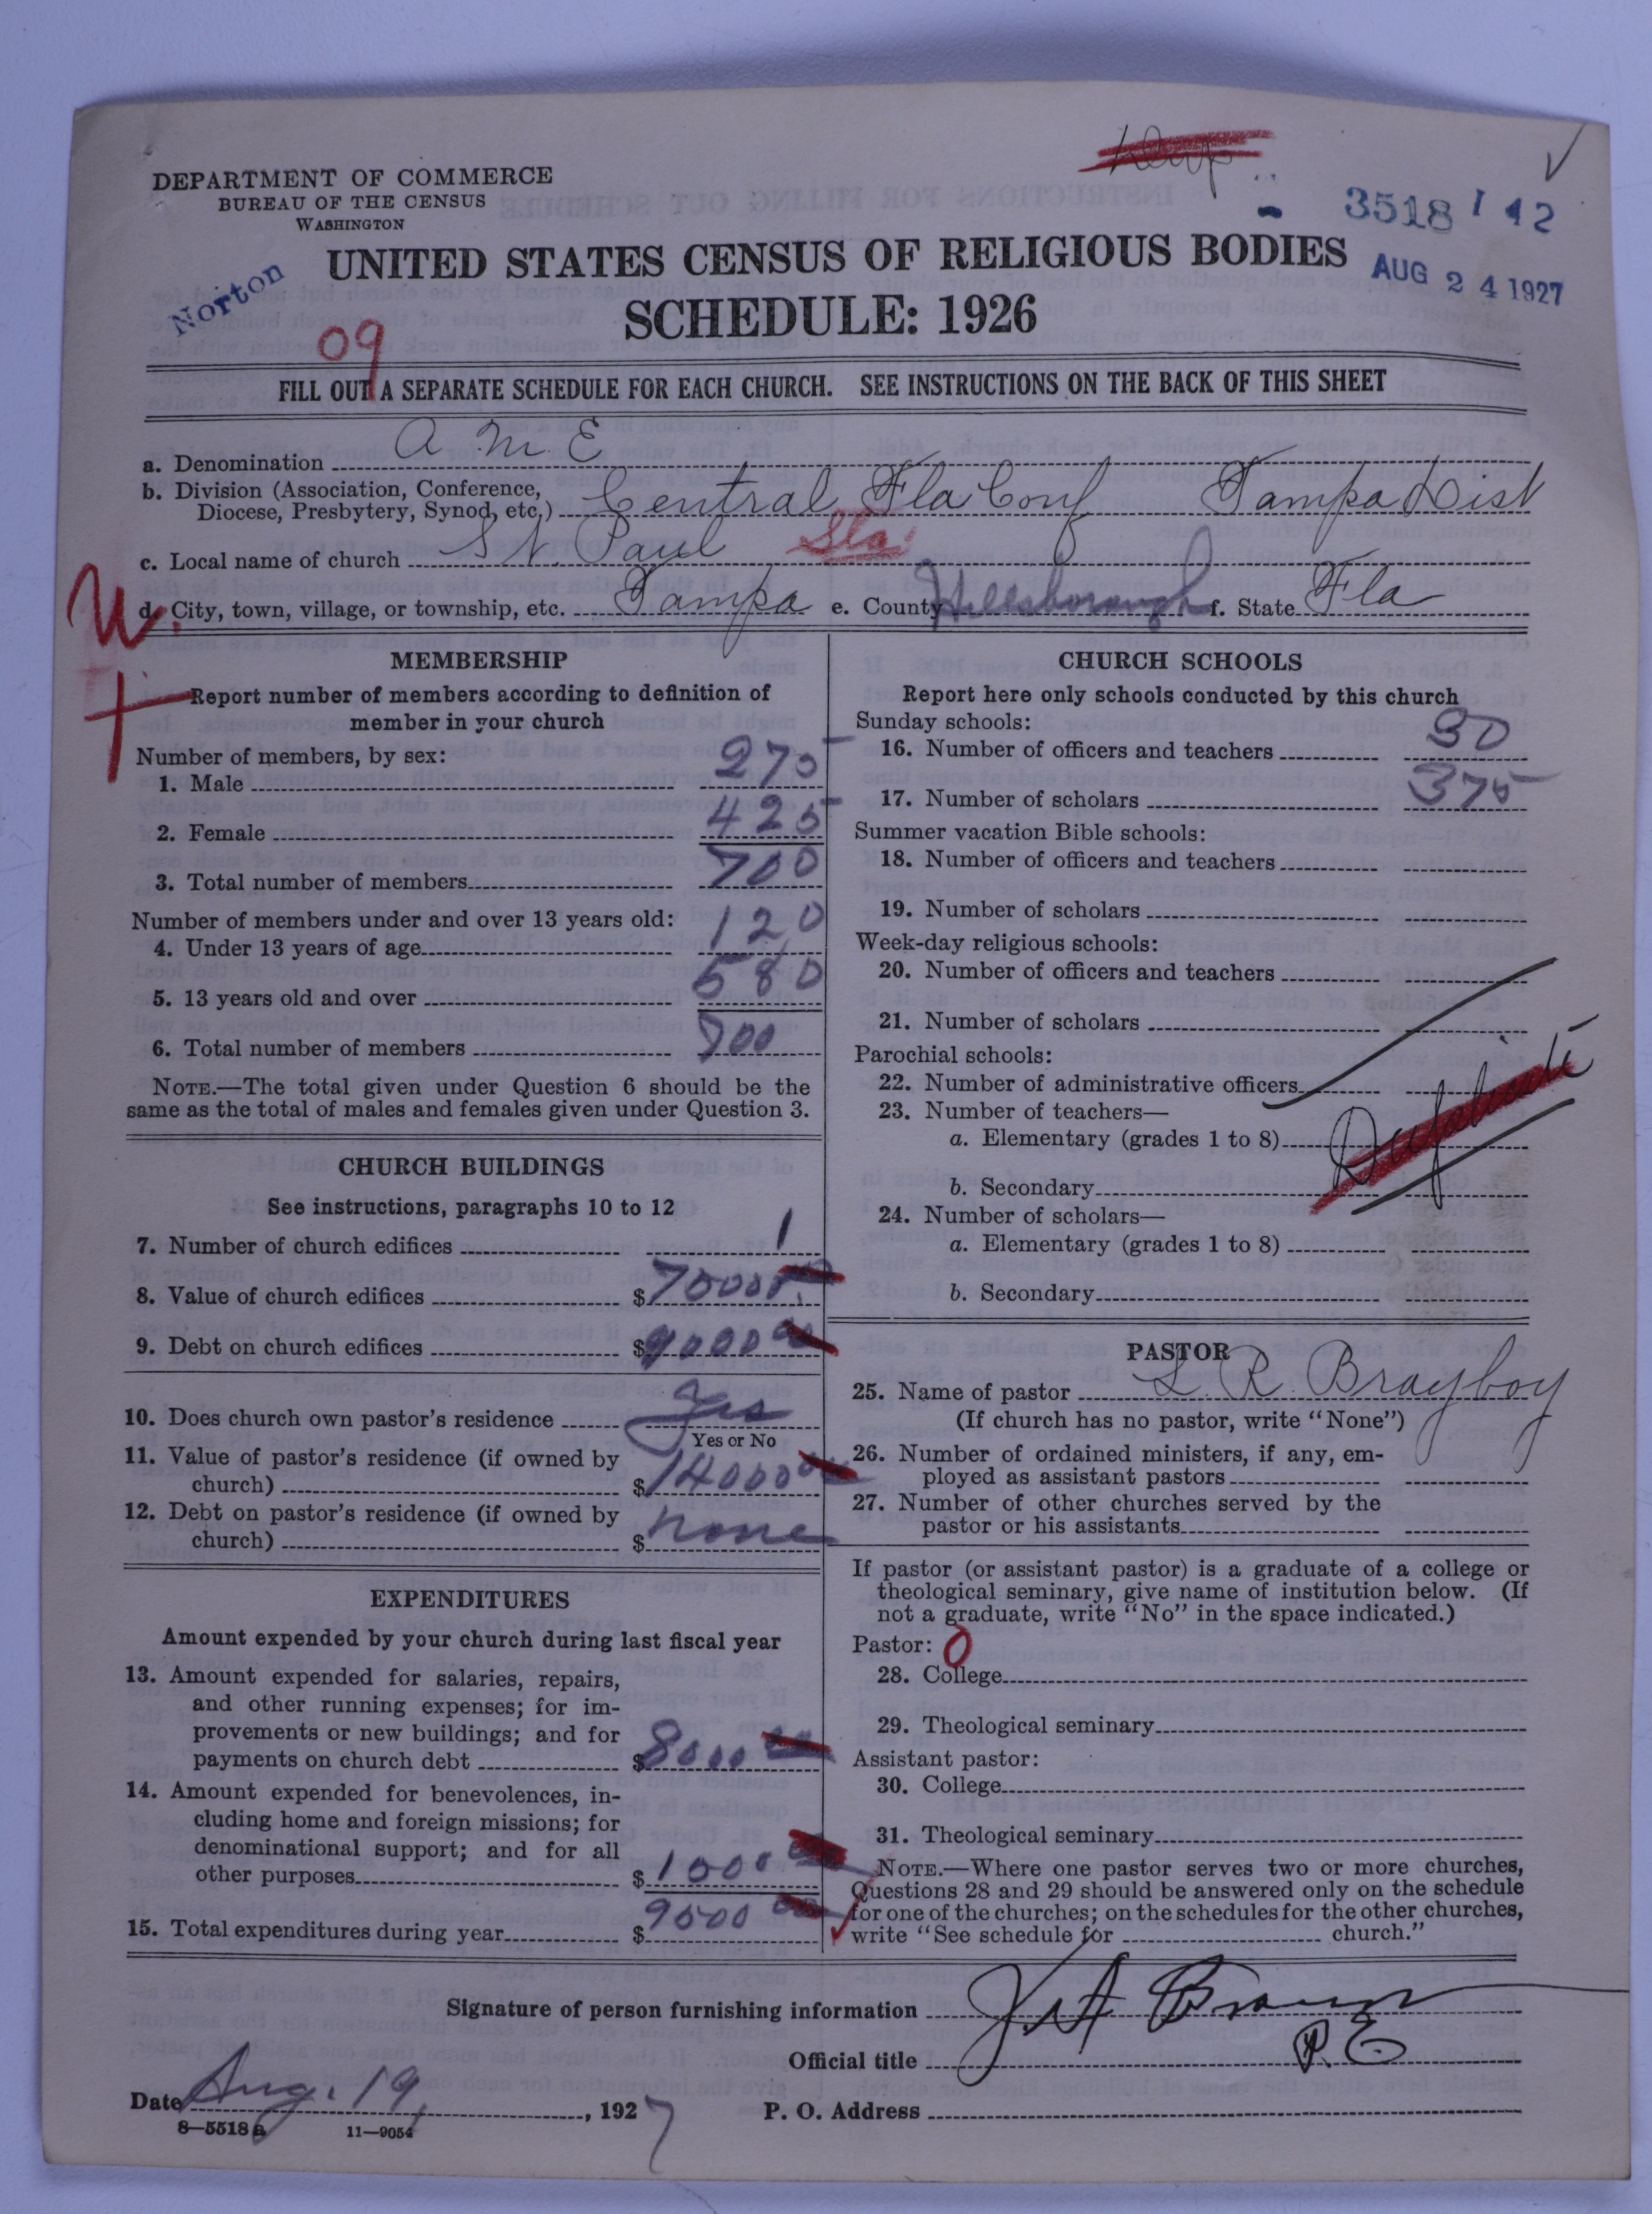 DEPARTMENT OF COMMERCE
BUREAU OF THE CENSUS
WASHINGTON
3518 1 12
UNITED STATES CENSUS OF RELIGIOUS BODIES
AUG 24 1927
Norton
SCHEDULE: 1926
09
FILL OUT A SEPARATE SCHEDULE FOR EACH CHURCH. SEE INSTRUCTIONS ON THE BACK OF THIS SHEET
a. Denomination A M E
b. Division (Association, Conference,
Diocese, Presbytery, Synod, etc.) Central Fla Conf Tampa Dist
c. Local name of church St. Paul Sta.
d. City, town, village, or township, etc. Tampa e. County Hillsborough f. State Fla
MEMBERSHIP
Report number of members according to definition of
member in your church
Number of members, by sex:
1. Male 275
2. Female 425
3. Total number of members 700
Number of members under and over 13 years old:
4. Under 13 years of age 120
5. 13 years old and over 580
6. Total number of members 700
NOTE.—The total given under Question 6 should be the
same as the total of males and females given under Question 3.
CHURCH BUILDINGS
See instructions, paragraphs 10 to 12
7. Number of church edifices 1
8. Value of church edifices $ 75000
9. Debt on church edifices $ 9000 00
10. Does church own pastor's residence Yes
Yes or No
11. Value of pastor's residence (if owned by
church) $ 14000 00
12. Debt on pastor's residence (if owned by
church) $ none
EXPENDITURES
Amount expended by your church during last fiscal year
13. Amount expended for salaries, repairs,
and other running expenses; for im-
provements or new buildings; and for
payments on church debt $ 8000 00
14. Amount expended for benevolences, in-
cluding home and foreign missions; for
denominational support; and for all
other purposes $ 1000 00
15. Total expenditures during year $ 9000 00
CHURCH SCHOOLS
Report here only schools conducted by this church
Sunday schools:
16. Number of officers and teachers 30
17. Number of scholars 375
Summer vacation Bible schools:
18. Number of officers and teachers
19. Number of scholars
Week-day religious schools:
20. Number of officers and teachers
21. Number of scholars
Parochial schools:
22. Number of administrative officers
23. Number of teachers—
a. Elementary (grades 1 to 8)
Duplicate
b. Secondary
24. Number of scholars—
a. Elementary (grades 1 to 8)
b. Secondary
PASTOR
25. Name of pastor L. R. Brayboy
(If church has no pastor, write "None")
26. Number of ordained ministers, if any, em-
ployed as assistant pastors
27. Number of other churches served by the
pastor or his assistants
If pastor (or assistant pastor) is a graduate of a college or
theological seminary, give name of institution below. (If
not a graduate, write "No" in the space indicated.)
Pastor: 0
28. College
29. Theological seminary
Assistant pastor:
30. College
31. Theological seminary
NOTE.—Where one pastor serves two or more churches,
Questions 28 and 29 should be answered only on the schedule
for one of the churches; on the schedules for the other churches,
write "See schedule for church."
Signature of person furnishing information
Official title P. E.
Date Aug. 19, 1927 P. O. Address
8—5518a 11—9054